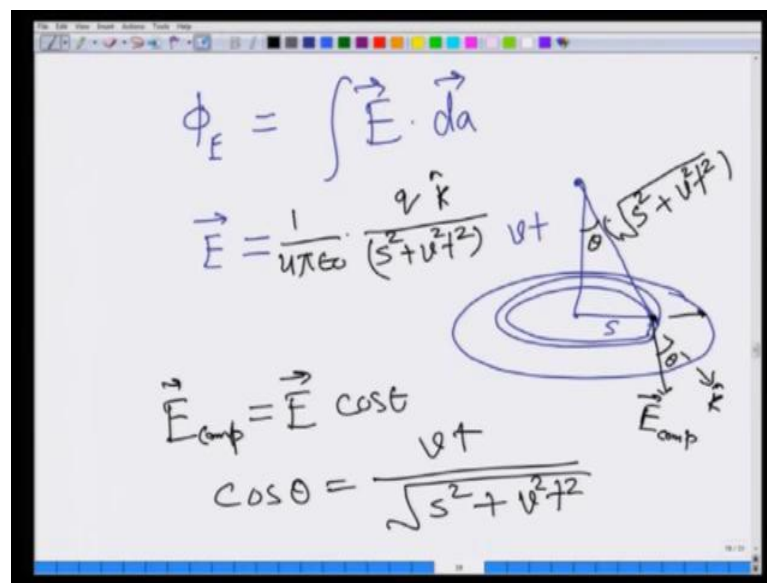 File Edit View Insert Actions Tools Help
Φ_E = ∫ E⃗ · da⃗
E⃗ = 1/4πε₀ · q k̂/(s² + v²t²)
vt
θ
√s² + v²t²
s
θ
k̂
E⃗comp
E⃗comp = E⃗ cosθ
cosθ = vt/√s² + v²t²